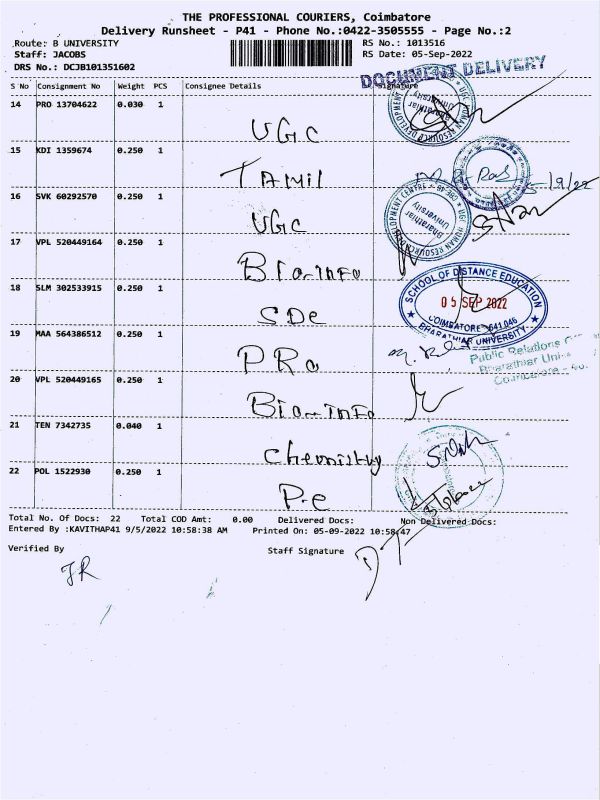 THE PROFESSIONAL COURIERS, Coimbatore
Delivery Runsheet - P41 - Phone No.:0422-3505555 - Page No.:2
Route: B UNIVERSITY RS No.: 1013516
Staff: JACOBS RS Date: 05-Sep-2022
DRS No.: DCJB101351602
DOCUMENT DELIVERY
S No Consignment No Weight PCS Consignee Details Signature
14 PRO 13704622 0.030 1
UGC
15 KDI 1359674 0.250 1
TAMil
16 SVK 60292570 0.250 1
UGC
Bharathiar University
17 VPL 520449164 0.250 1
Bio-info
18 SLM 302533915 0.250 1
SDe
SCHOOL OF DISTANCE EDUCATION
05 SEP 2022
COIMBATORE - 641 046
BHARATHIAR UNIVERSITY
19 MAA 564386512 0.250 1
PRo
Public Relations
Bharathiar Uni
20 VPL 520449165 0.250 1
Bio-info
21 TEN 7342735 0.040 1
Chemistry
22 POL 1522930 0.250 1
P.e
Total No. Of Docs: 22 Total COD Amt: 0.00 Delivered Docs: Non Delivered Docs:
Entered By :KAVITHAP41 9/5/2022 10:58:38 AM Printed On: 05-09-2022 10:58:47
Verified By Staff Signature